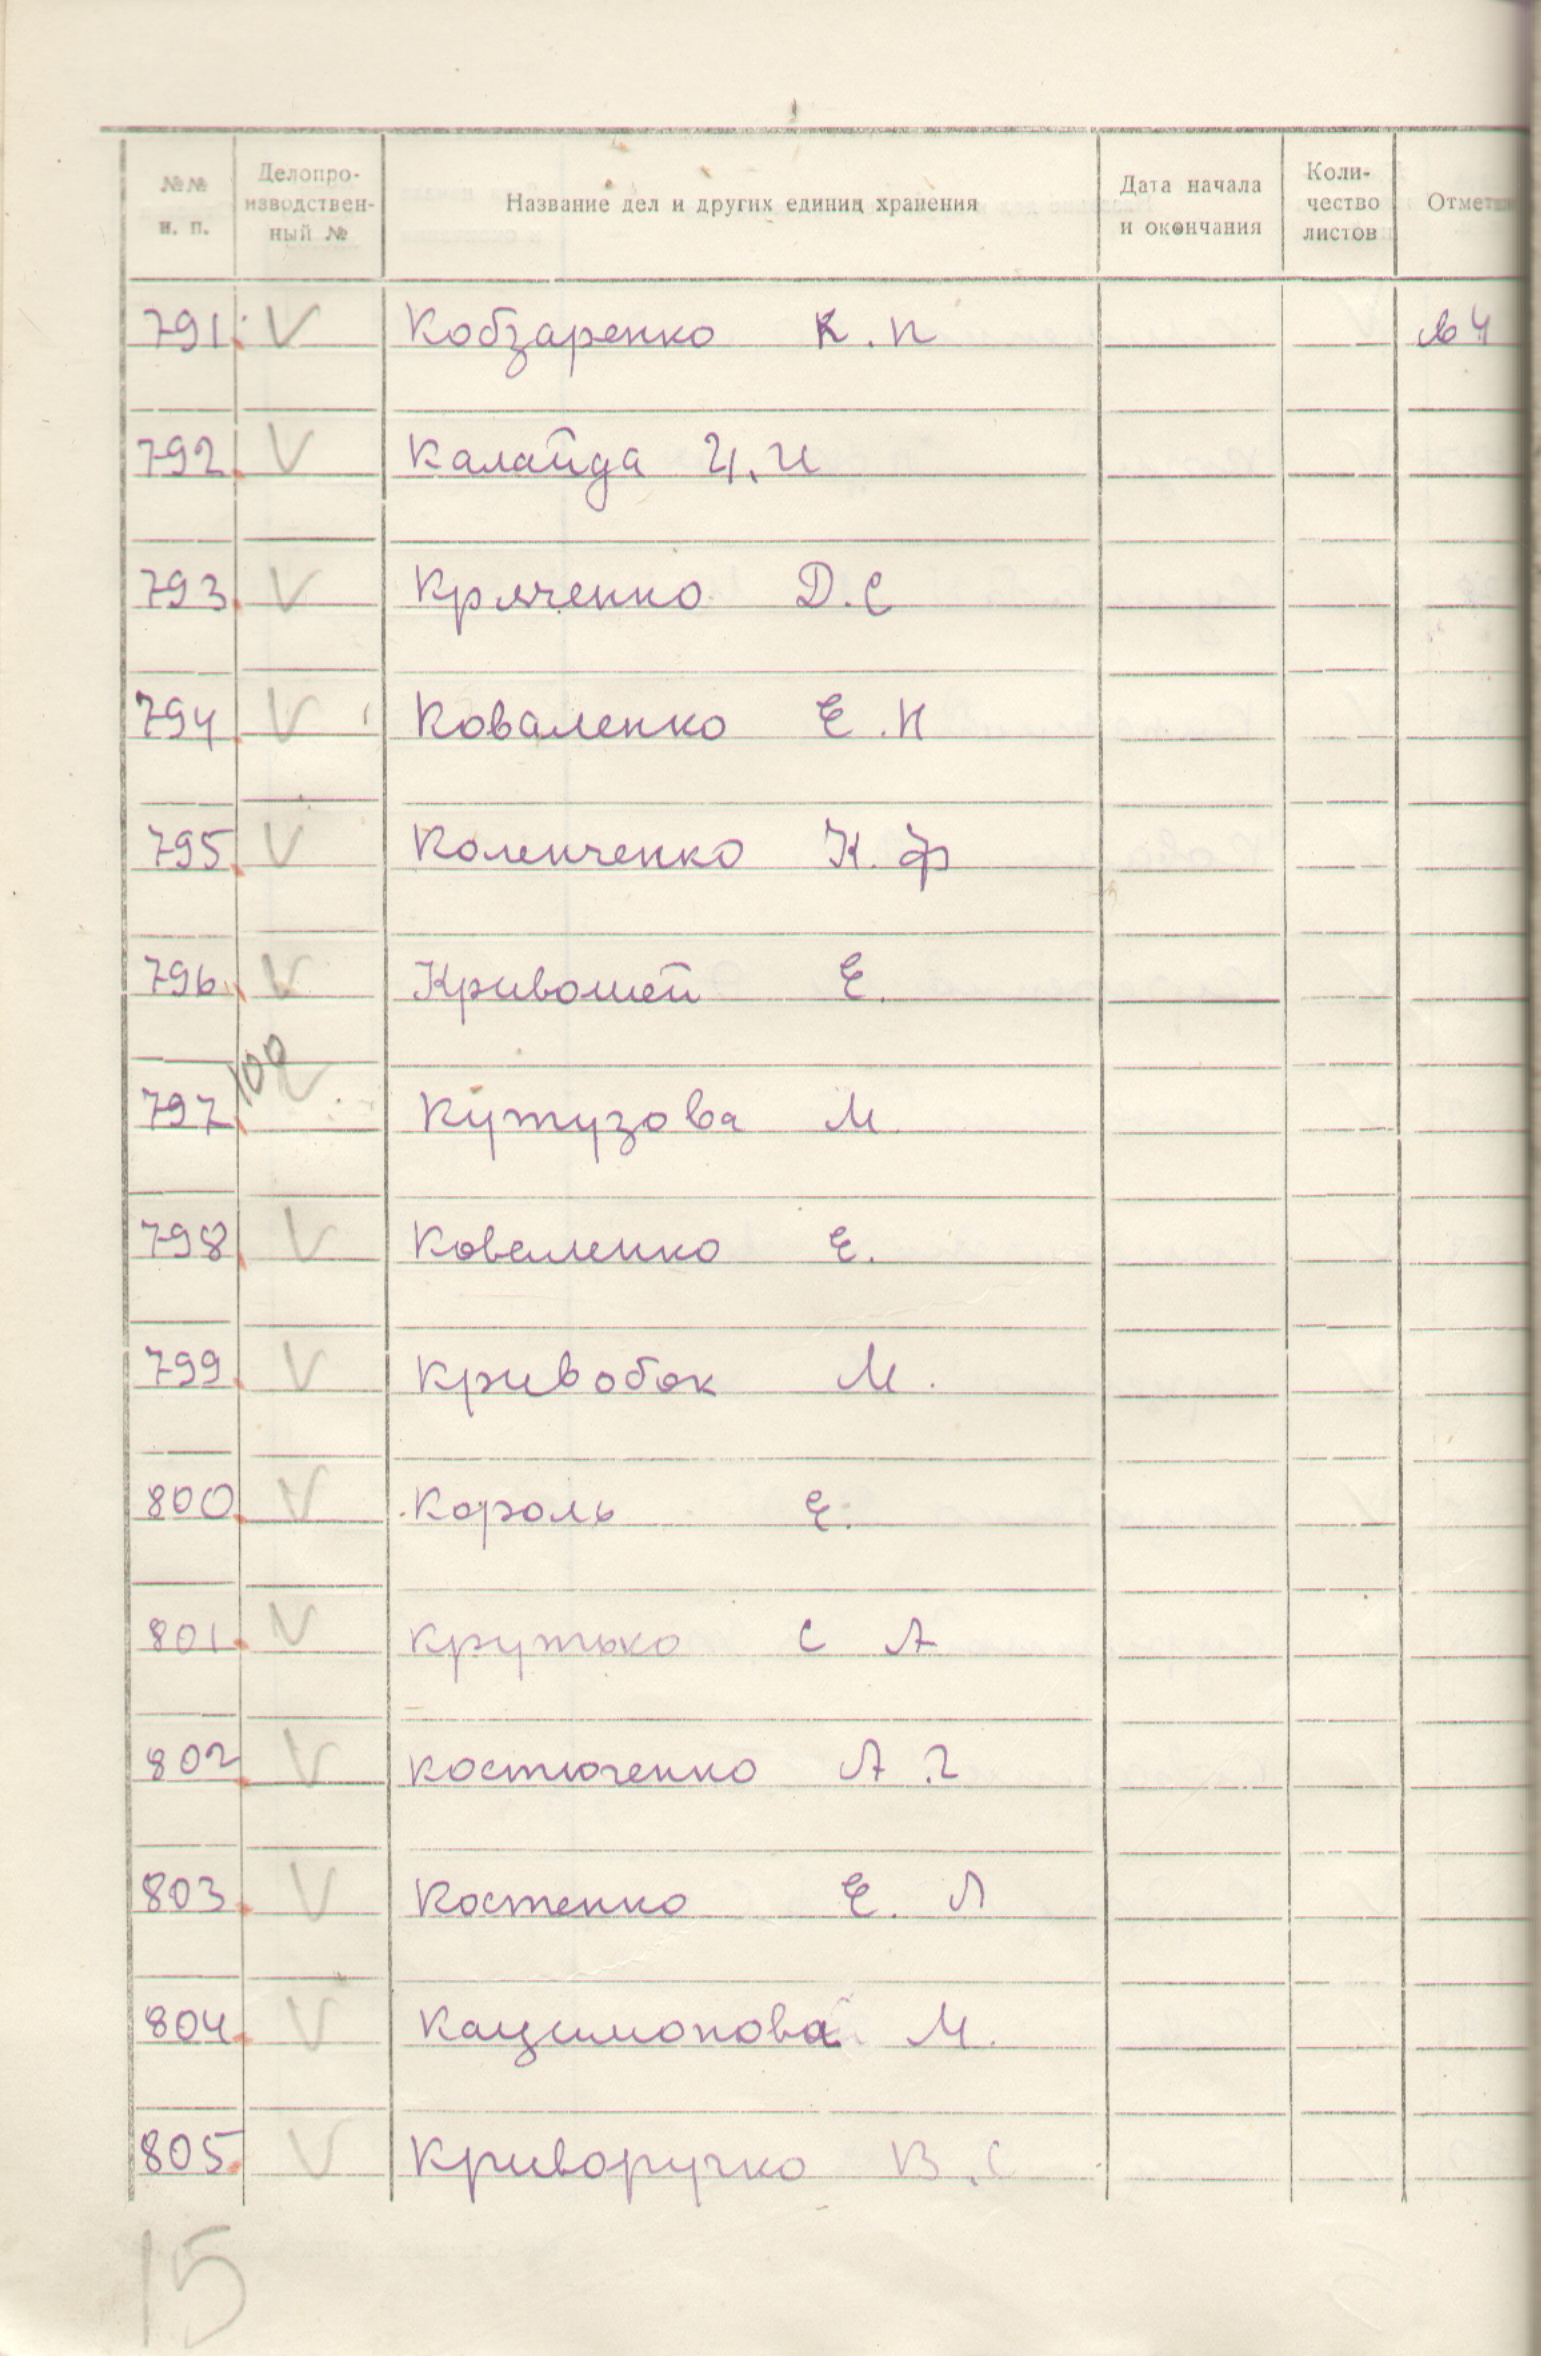 №№ п. п. Делопро-изводствен-ный № Название дел и других единиц хранения Дата начала и окончания Коли-чество листов Отмет
791. V Кобзаренко К. П
792. V Калайда И. И
793. V Кряченко Д. С
794. V Коваленко Е. Н
795. V Коленченко К. Ф
796. V Кривошей Е.
100
797. V Кутузова М.
798. V Коваленко Е.
799. V Кривобок М.
800. V Король Е.
801. V Крутько С А
802. V Костюченко А. Г
803. V Костенко Е. Л
804. V М.
805. V Криворучко В. С
15